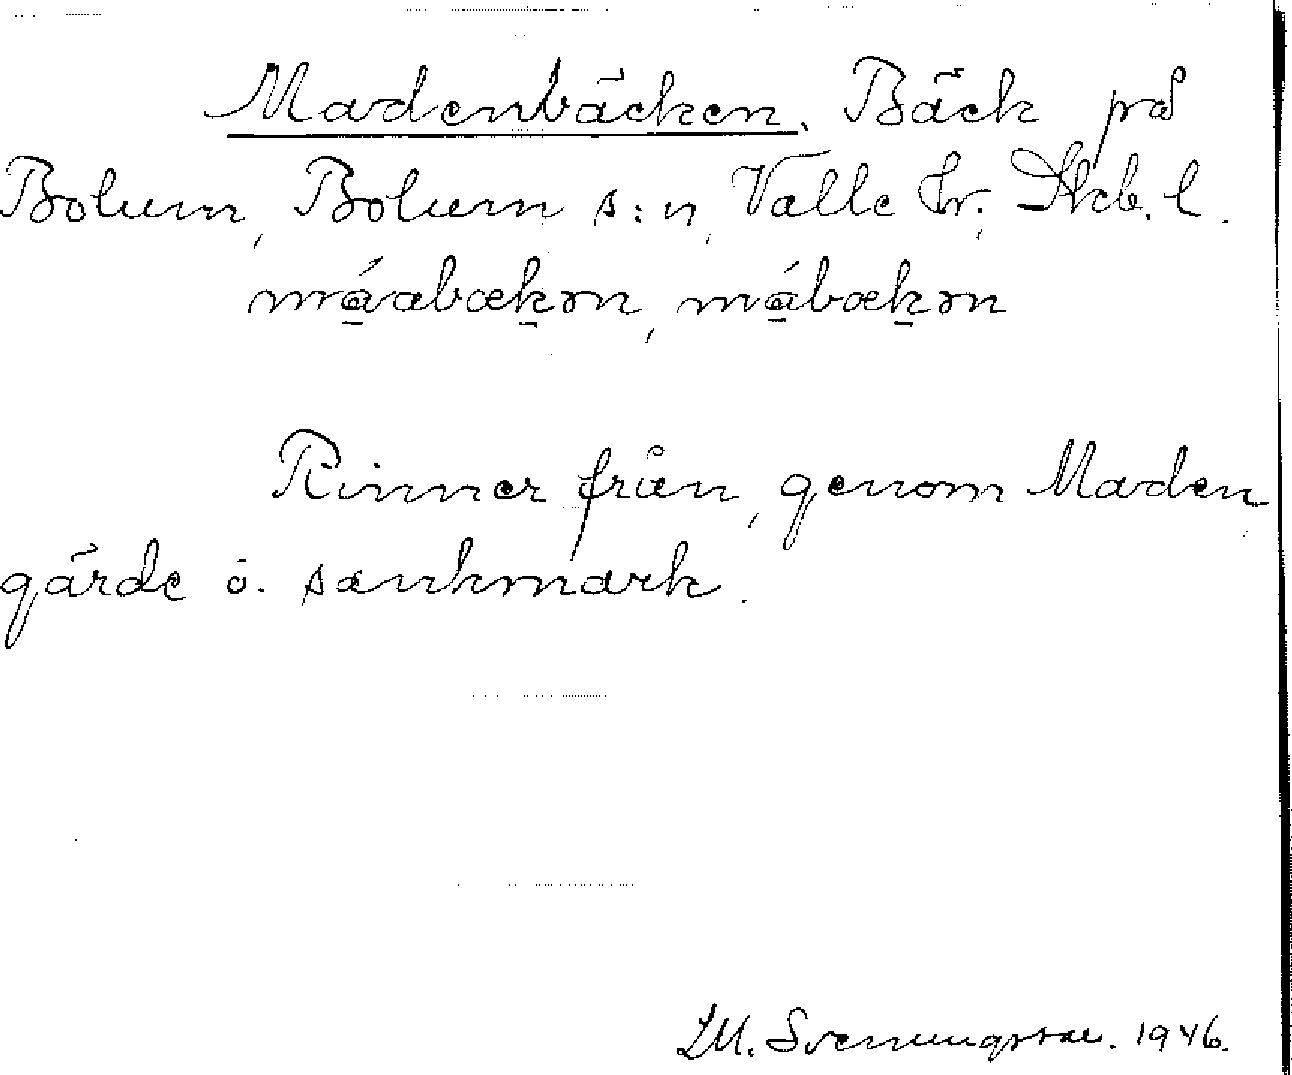 Madenbäcken. Bäck på
Bolum, Bolum s:n, Valle hr; Skb. l.
mɑ̱́abækən, mɑ̱́bækən
Rinner från, genom Maden
gärde o. sankmark.
I.M. Svenungsson. 1946.